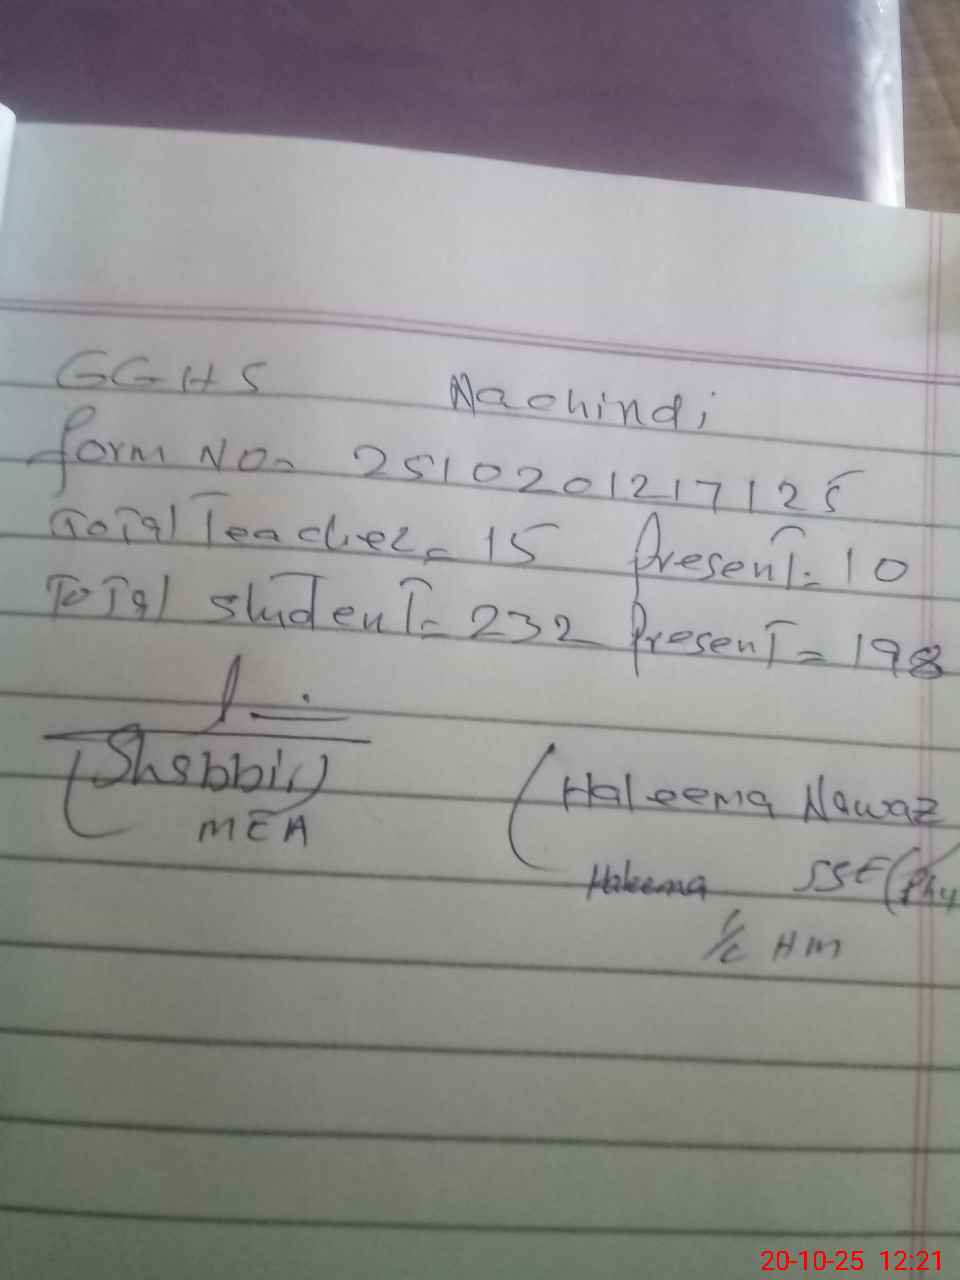 GGHS Nachindi
form NO= 2510201217125
Total Teacher= 15 Present= 10
Total student= 232 Present= 198
(Shabbir)
MEA
(Haleema Nawaz
Haleema SSE (Phy
I/C HM
20-10-25 12:21